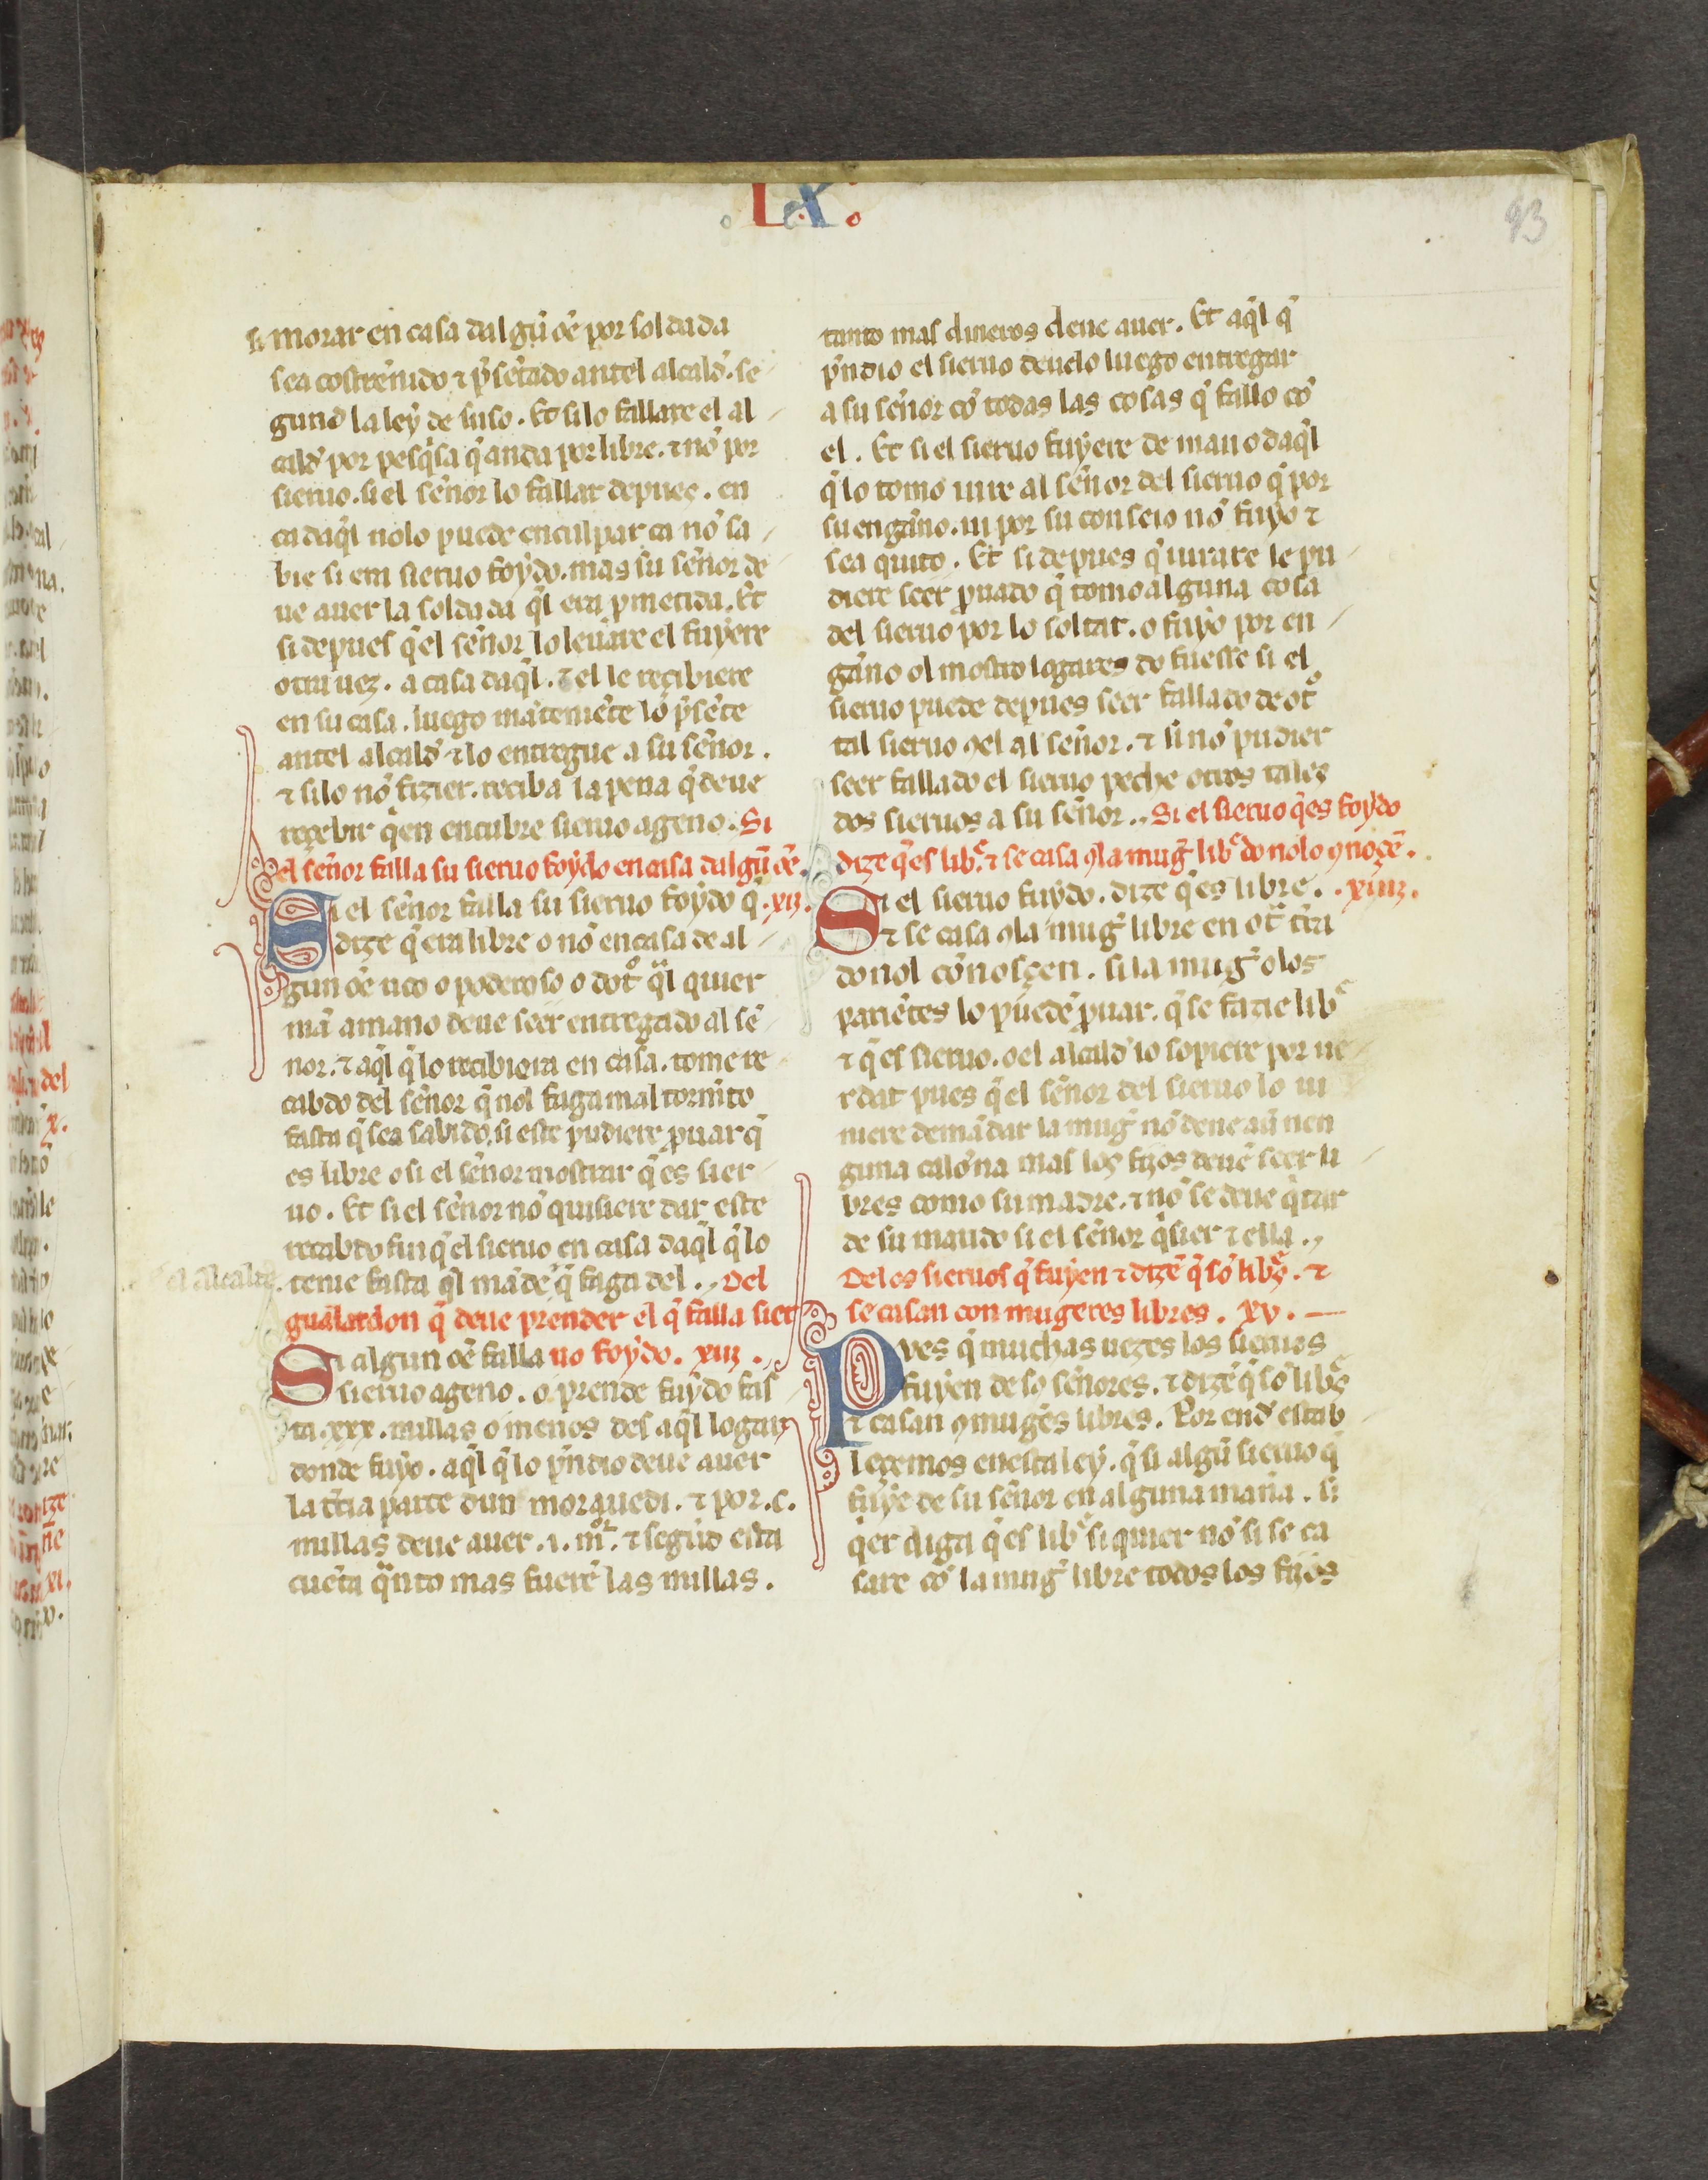 .L.X.
93
si morar en casa dalgũ oẽ por soldada
sea costrenido ⁊ p̃sẽtado antel alcalď. se
gund la ley de suso. Et si lo fallare el al
calď por pesq̃sa q̃ anda por libre. ⁊ nõ por
sieruo. si el señor lo fallar depues. en
ca daq̃l nolo puede enculpar ca nõ sa
bie si era sieruo foydo. mas su señor de
ue auer la soldada q̃l era ꝓmetida. Et
si depues q̃ el señor lo leuare el fuyere
otra uez. a casa daq̃l. ⁊ el le reçibiere
en su casa. luego mãteniẽte lo p̃sẽte
antel alcalď ⁊ lo entregue a su señor.
⁊ si lo nõ fizier. reciba la pena q̃ deue
reçebir q̃en encubre sieruo ageno. Si
el señor falla su sieruo foydo en casa dalgũ oẽ.
Si el señor falla su sieruo foydo q̃ .xij.
dize q̃ era libre o nõ en casa de al
gun oẽ rico o poderoso o dotº q̃l quier
mã amano deue seer entregado al se
ñor. ⁊ aq̃l q̃ lo recibiera en casa. tome re
cabdo del señor q̃ nol faga mal tormto
fasta q̃ sea sabido. si este pudiere ꝓuar q̃
es libre o si el señor mostrar q̃ es sier
uo. Et si el señor nõ quisiere dar este
recabdo finq̃ el sieruo en casa daq̃l q̃ lo
el alcalde
tenie fasta q̃l mãde q̃ faga del. Del
gualardon q̃ deue prender el q̃ falla sier
Si algun oẽ falla uo foydo. xiij.
sieruo ageno. o prende fuydo fas
ta .xxx. millas o menos des aq̃l logar
donde fuyo. aq̃l q̃ lo p̃ndio deue auer
la tr̃cia parte dun morauedi. ⁊ por .c.
millas deue auer .i. mr̃. ⁊ segũd esta
cuẽta q̃nto mas fuerẽ las millas.
tanto mas dineros deue auer. Et aq̃l q̃
p̃ndio el sieruo deuelo luego entregar
a su señor cõ todas las cosas q̃ fallo cõ
el. Et si el sieruo fuyere de mano daq̃l
q̃ lo tomo iure al señor del sieruo q̃ por
su engãno. ni por su conseio nõ fuyo ⁊
sea quito. Et si depues q̃ iurare le pu
diere seer ꝓuado q̃ tomo alguna cosa
del sieruo por lo soltar. o fuyo por en
gãno ol mostro logares do fuesse si el
sieruo puede depues seer fallado de otº
tal sieruo ꝯel al señor. ⁊ si nõ pudier
seer fallado el sieruo peche otros tales
dos sieruos a su señor. Si el sieruo q̃ es foydo
dize q̃ es libᵉ ⁊ se casa ꝯla mug̃ libᵉ do nolo ꝯnoçẽ.
Si el sieruo fuydo. dize q̃ es libre. .xiiij.
⁊ se casa ꝯla mug̃ libre en ot̃ tr̃ra
do nol cõnosçen. si la mug̃ o los
pariẽtes lo puedẽ ꝓuar. q̃ se fazie libᵉ
⁊ q̃ es sieruo. o el alcalď lo sopiere por ue
rdat pues q̃ el señor del sieruo lo ui
niere demãdar la mug̃ nõ deue aũ nen
guna calõna mas los fijos deuẽ seer li
bres como su madre. ⁊ nõ se deue q̃tar
de su marido si el señor q̃sier ⁊ ella.
Delos sieruos q̃ fuyen ⁊ dizẽ q̃ sõ libᵉs. ⁊
se casan con mugeres libres. xv.
Pues q̃ muchas uezes los sieruos
fuyen de so señores. ⁊ dizẽ q̃ sõ libᵉs
⁊ casan ꝯ mug̃es libres. Por enď estab
leçemos en esta ley. q̃ si algũ sieruo q̃
fuye de su señor en alguna maña. si
q̃er diga q̃ es libᵉ si quier nõ si se ca
sare cõ la mug̃ libre todos los fijos